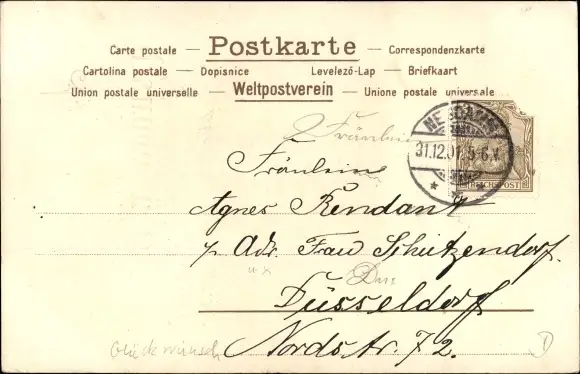 Carte postale — Postkarte — Correspondenzkarte
Cartolina postale — Dopisnice Levelező-Lap — Briefkaart
Union postale universelle — Weltpostverein — Unione postale universale
Fräulein
31.12.01. 5-6.V.
REICHSPOST
Fräulein
Agnes Rendant
p. Adr. Frau Schützendorf.
Düsseldorf
Nordstr. 72.
Glückwunsch